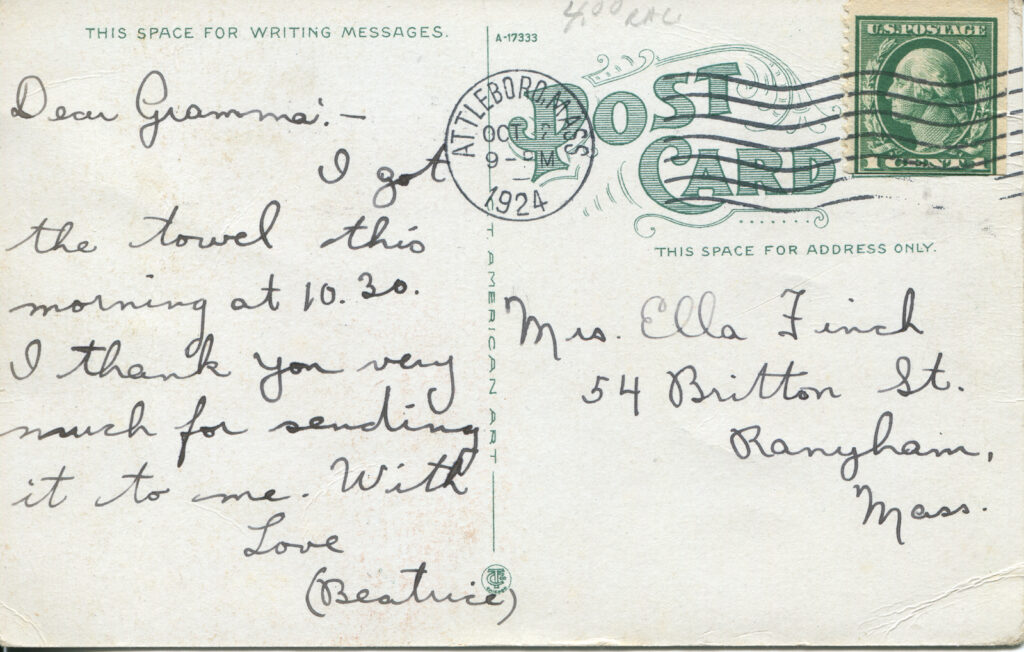 THIS SPACE FOR WRITING MESSAGES.
Dear Gramma:-
I got
the towel this
morning at 10.30.
I thank you very
much for sending
it to me. With
Love
(Beatrice)
A-17333
4.00
POST
CARD
THIS SPACE FOR ADDRESS ONLY.
T AMERICAN ART
ATTLEBORO, MASS
OCT
9-
M
1924
U.S. POSTAGE
1 CENT 1
Mrs. Ella Finch
54 Britton St.
Ranyham,
Mass.